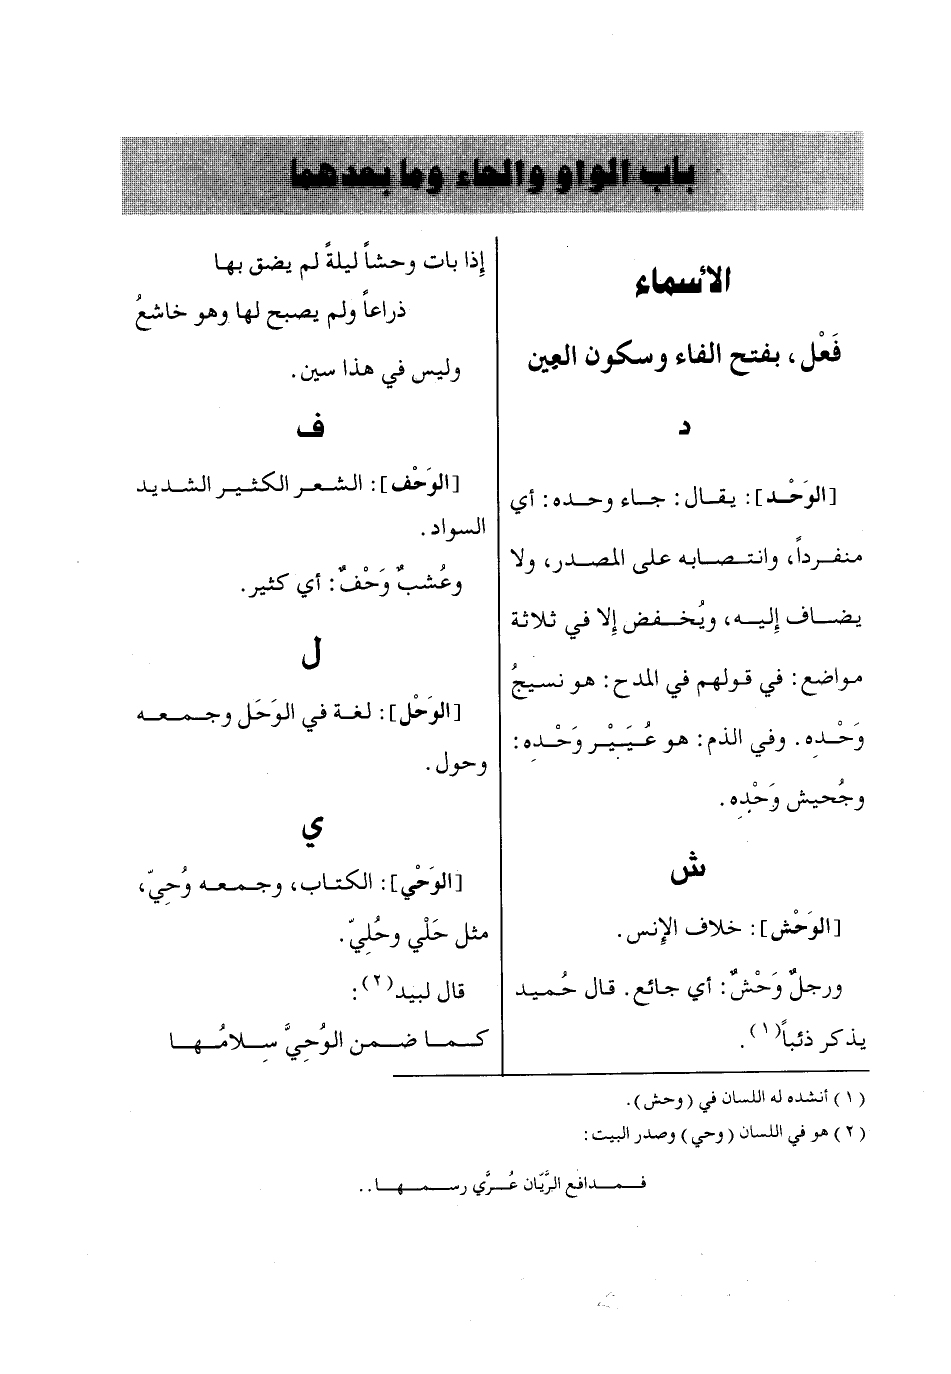 باب الواو والحاء وما بعدهما
الأسماء
فَعْل، بفتح الفاء وسكون العين
د
[الوَحْد]: يقال: جاء وحده: أي
منفرداً، وانتصابه على المصدر، ولا
يضاف إليه، ويُخفض إلا في ثلاثة
مواضع: في قولهم في المدح: هو نسيجُ
وَحْدِه. وفي الذم: هو عُيَيْر وَحْدِه:
وجُحيش وَحْدِه.
ش
[الوَحْش]: خلاف الإنس.
ورجلٌ وَحْشٌ: أي جائع. قال حُميد
يذكر ذئباً(١).
إذا بات وحشاً ليلةً لم يضق بها
ذراعاً ولم يصبح لها وهو خاشعُ
وليس في هذا سين.
ف
[الوَحْف]: الشعر الكثير الشديد
السواد.
وعُشبٌ وَحْفٌ: أي كثير.
ل
[الوَحْل]: لغة في الوَحَل وجمعه
وحول.
ي
[الوَحْي]: الكتاب، وجمعه وُحِيّ،
مثل حَلْي وحُلِيّ.
قال لبيد(٢):
كما ضمن الوُحِيَّ سِلامُها
(١) أنشده له اللسان في (وحش).
(٢) هو في اللسان (وحي) وصدر البيت:
فمدافع الريَّان عُرَّي رسمها..